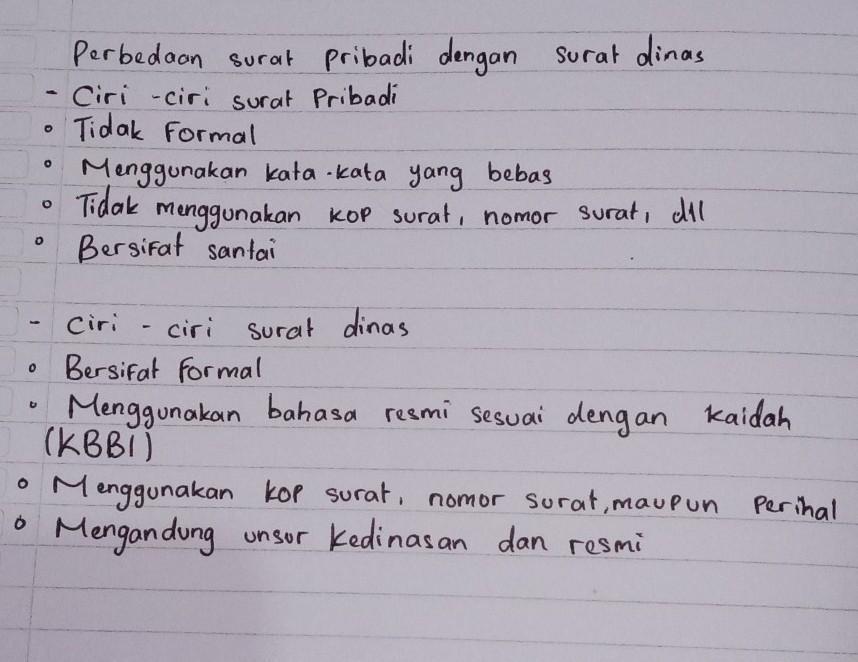 Perbedaan surat pribadi dengan surat dinas
- Ciri - ciri surat Pribadi
• Tidak Formal
• Menggunakan kata-kata yang bebas
• Tidak menggunakan kop surat, nomor surat, dll
• Bersifat santai
- Ciri - ciri surat dinas
• Bersifat formal
• Menggunakan bahasa resmi sesuai dengan kaidah
(KBBI)
• Menggunakan kop surat, nomor surat, maupun Perihal
• Mengandung unsur kedinasan dan resmi